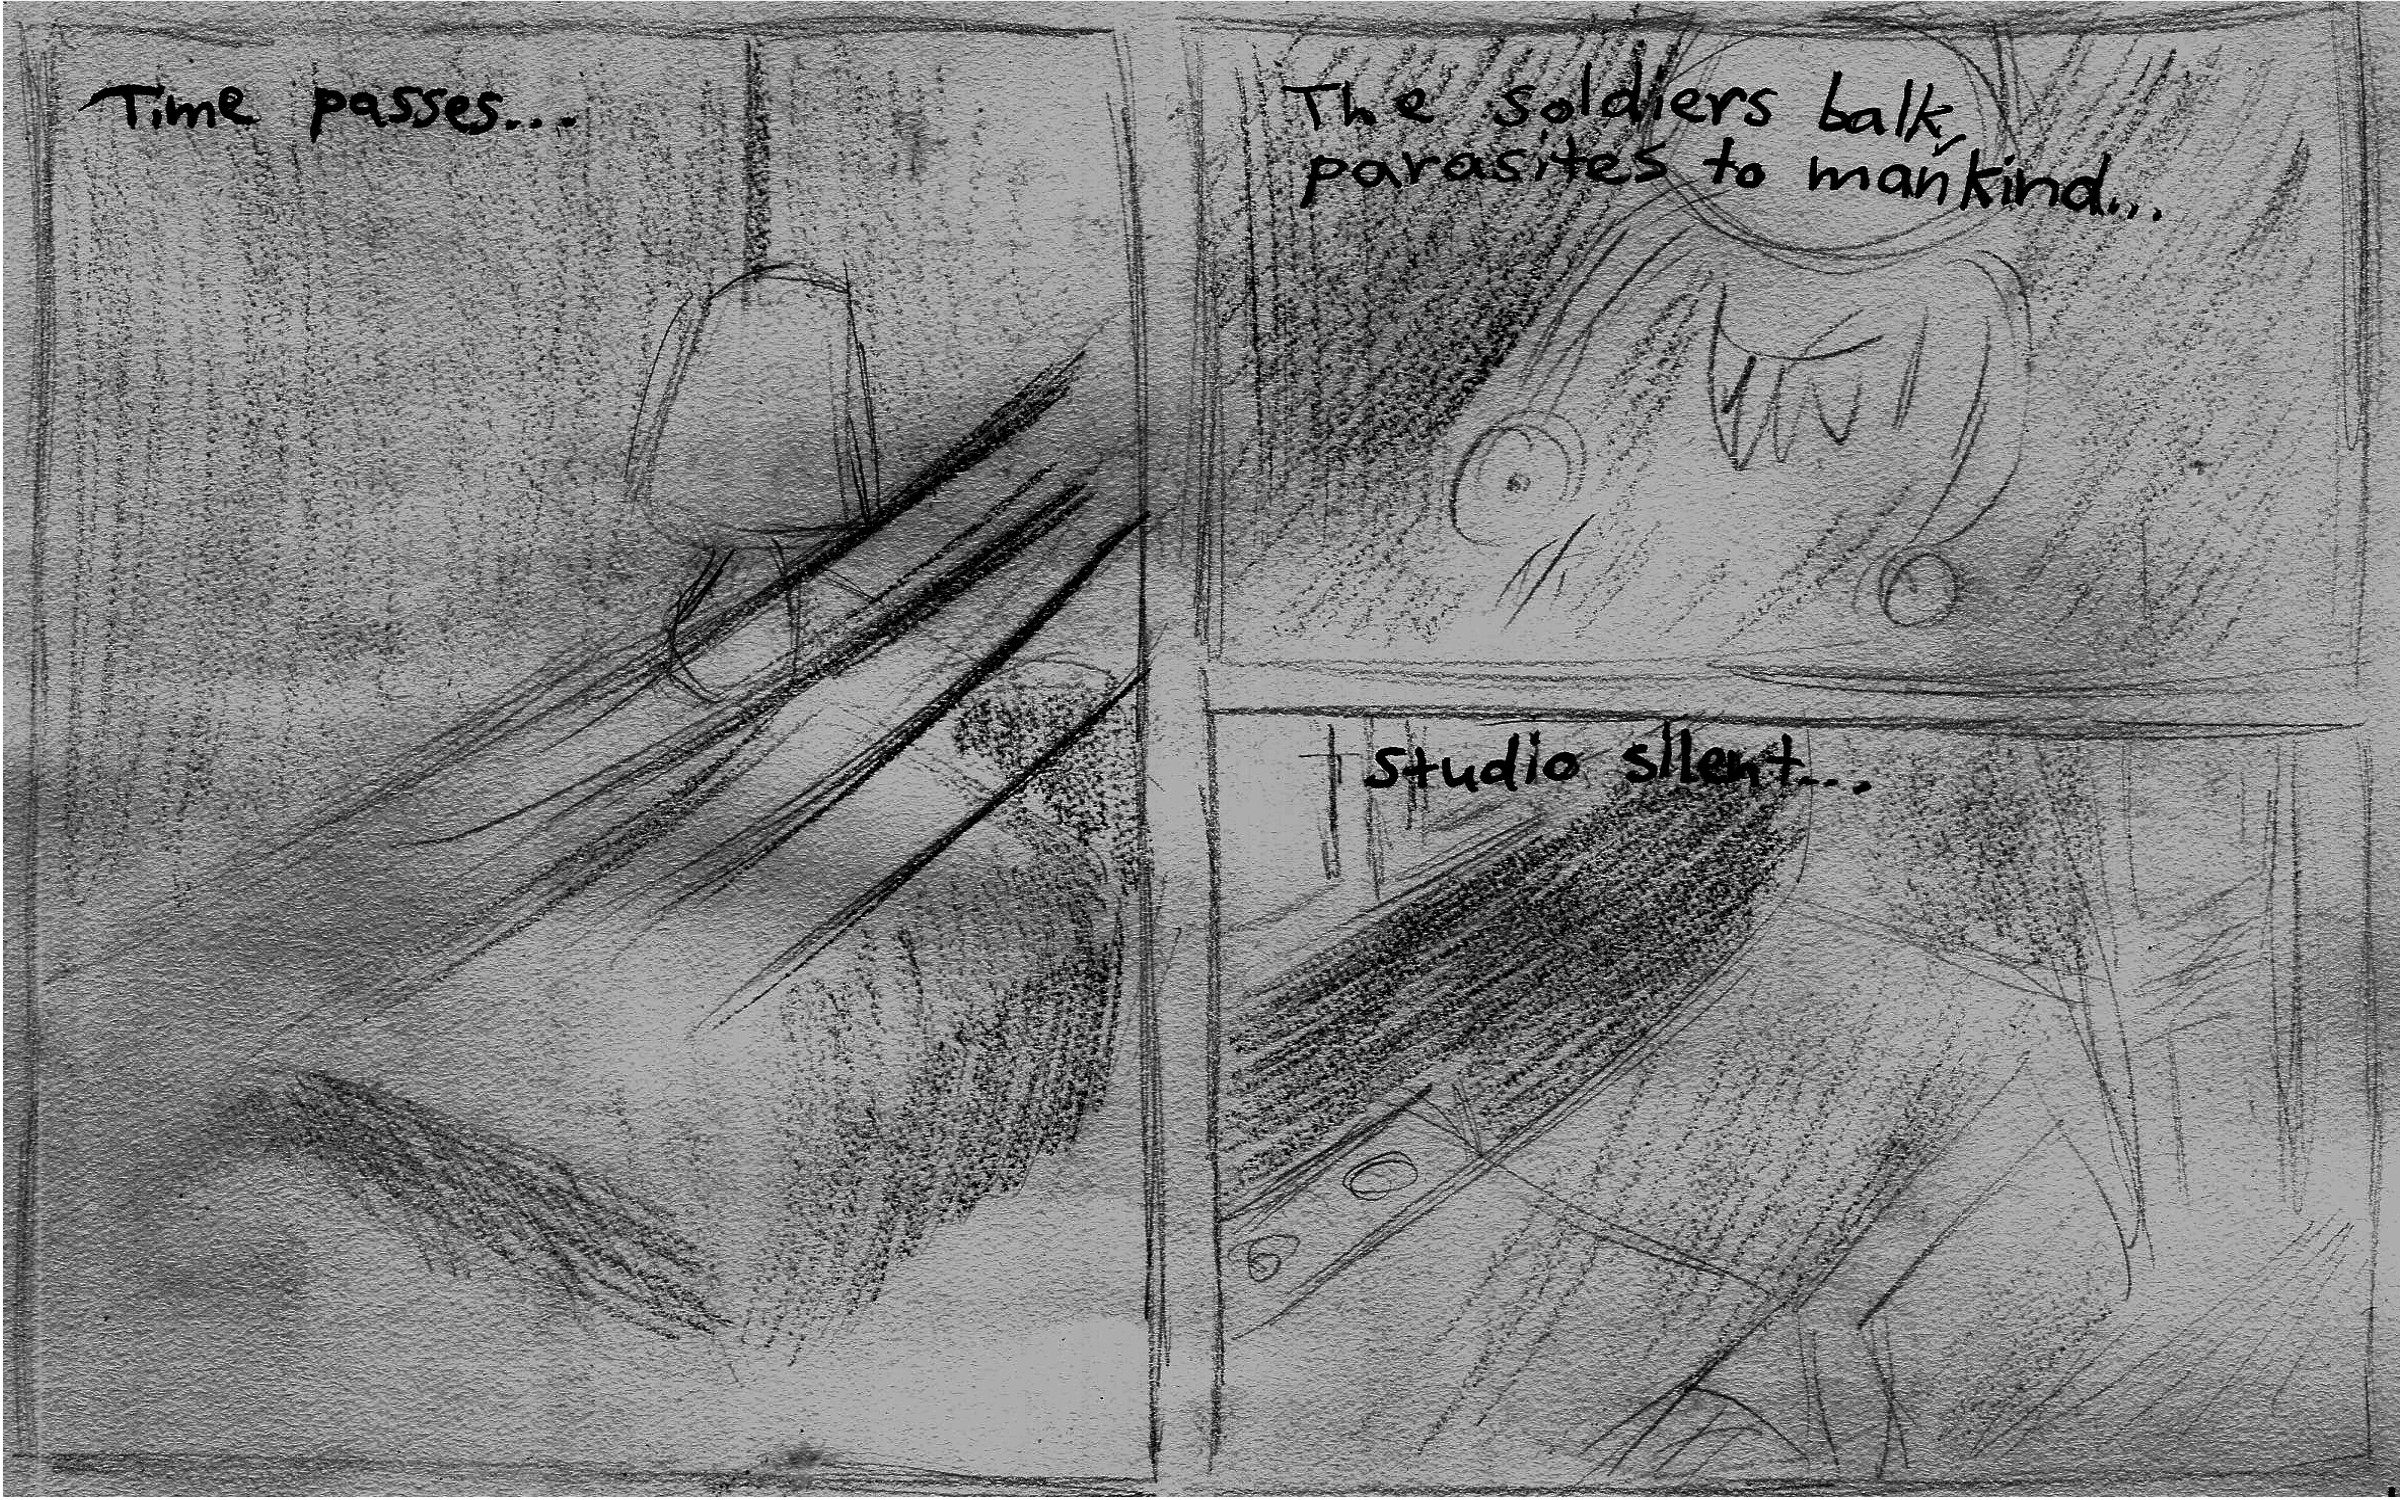 Time passes...
The soldiers balk,
parasites to mankind...
Studio silent...